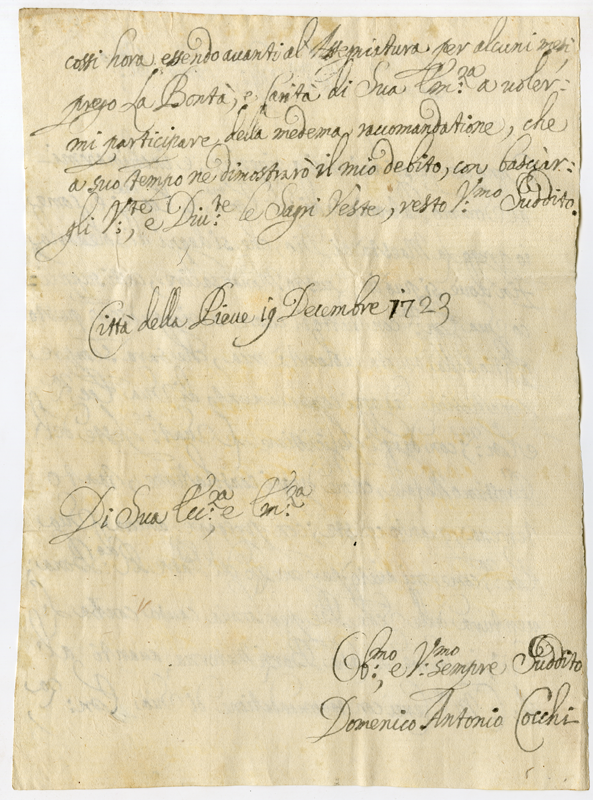 cossi hora essendo avanti al Assenciatura per alcuni mesi
prego La Bontà, e Carità di Sua Em:za a voler:
mi participare della medema raccomandatione, che
a suo tempo ne dimostrarò il mio debito, con basciar:
gli V:te, e Div:te le Sagri Veste, resto V:mo Suddito.
Città della Pieve 19 Decembre 1723
Di Sua Ecc:za e Em:za
Obb:mo, e V:mo sempre Suddito
Domenico Antonio Cocchi